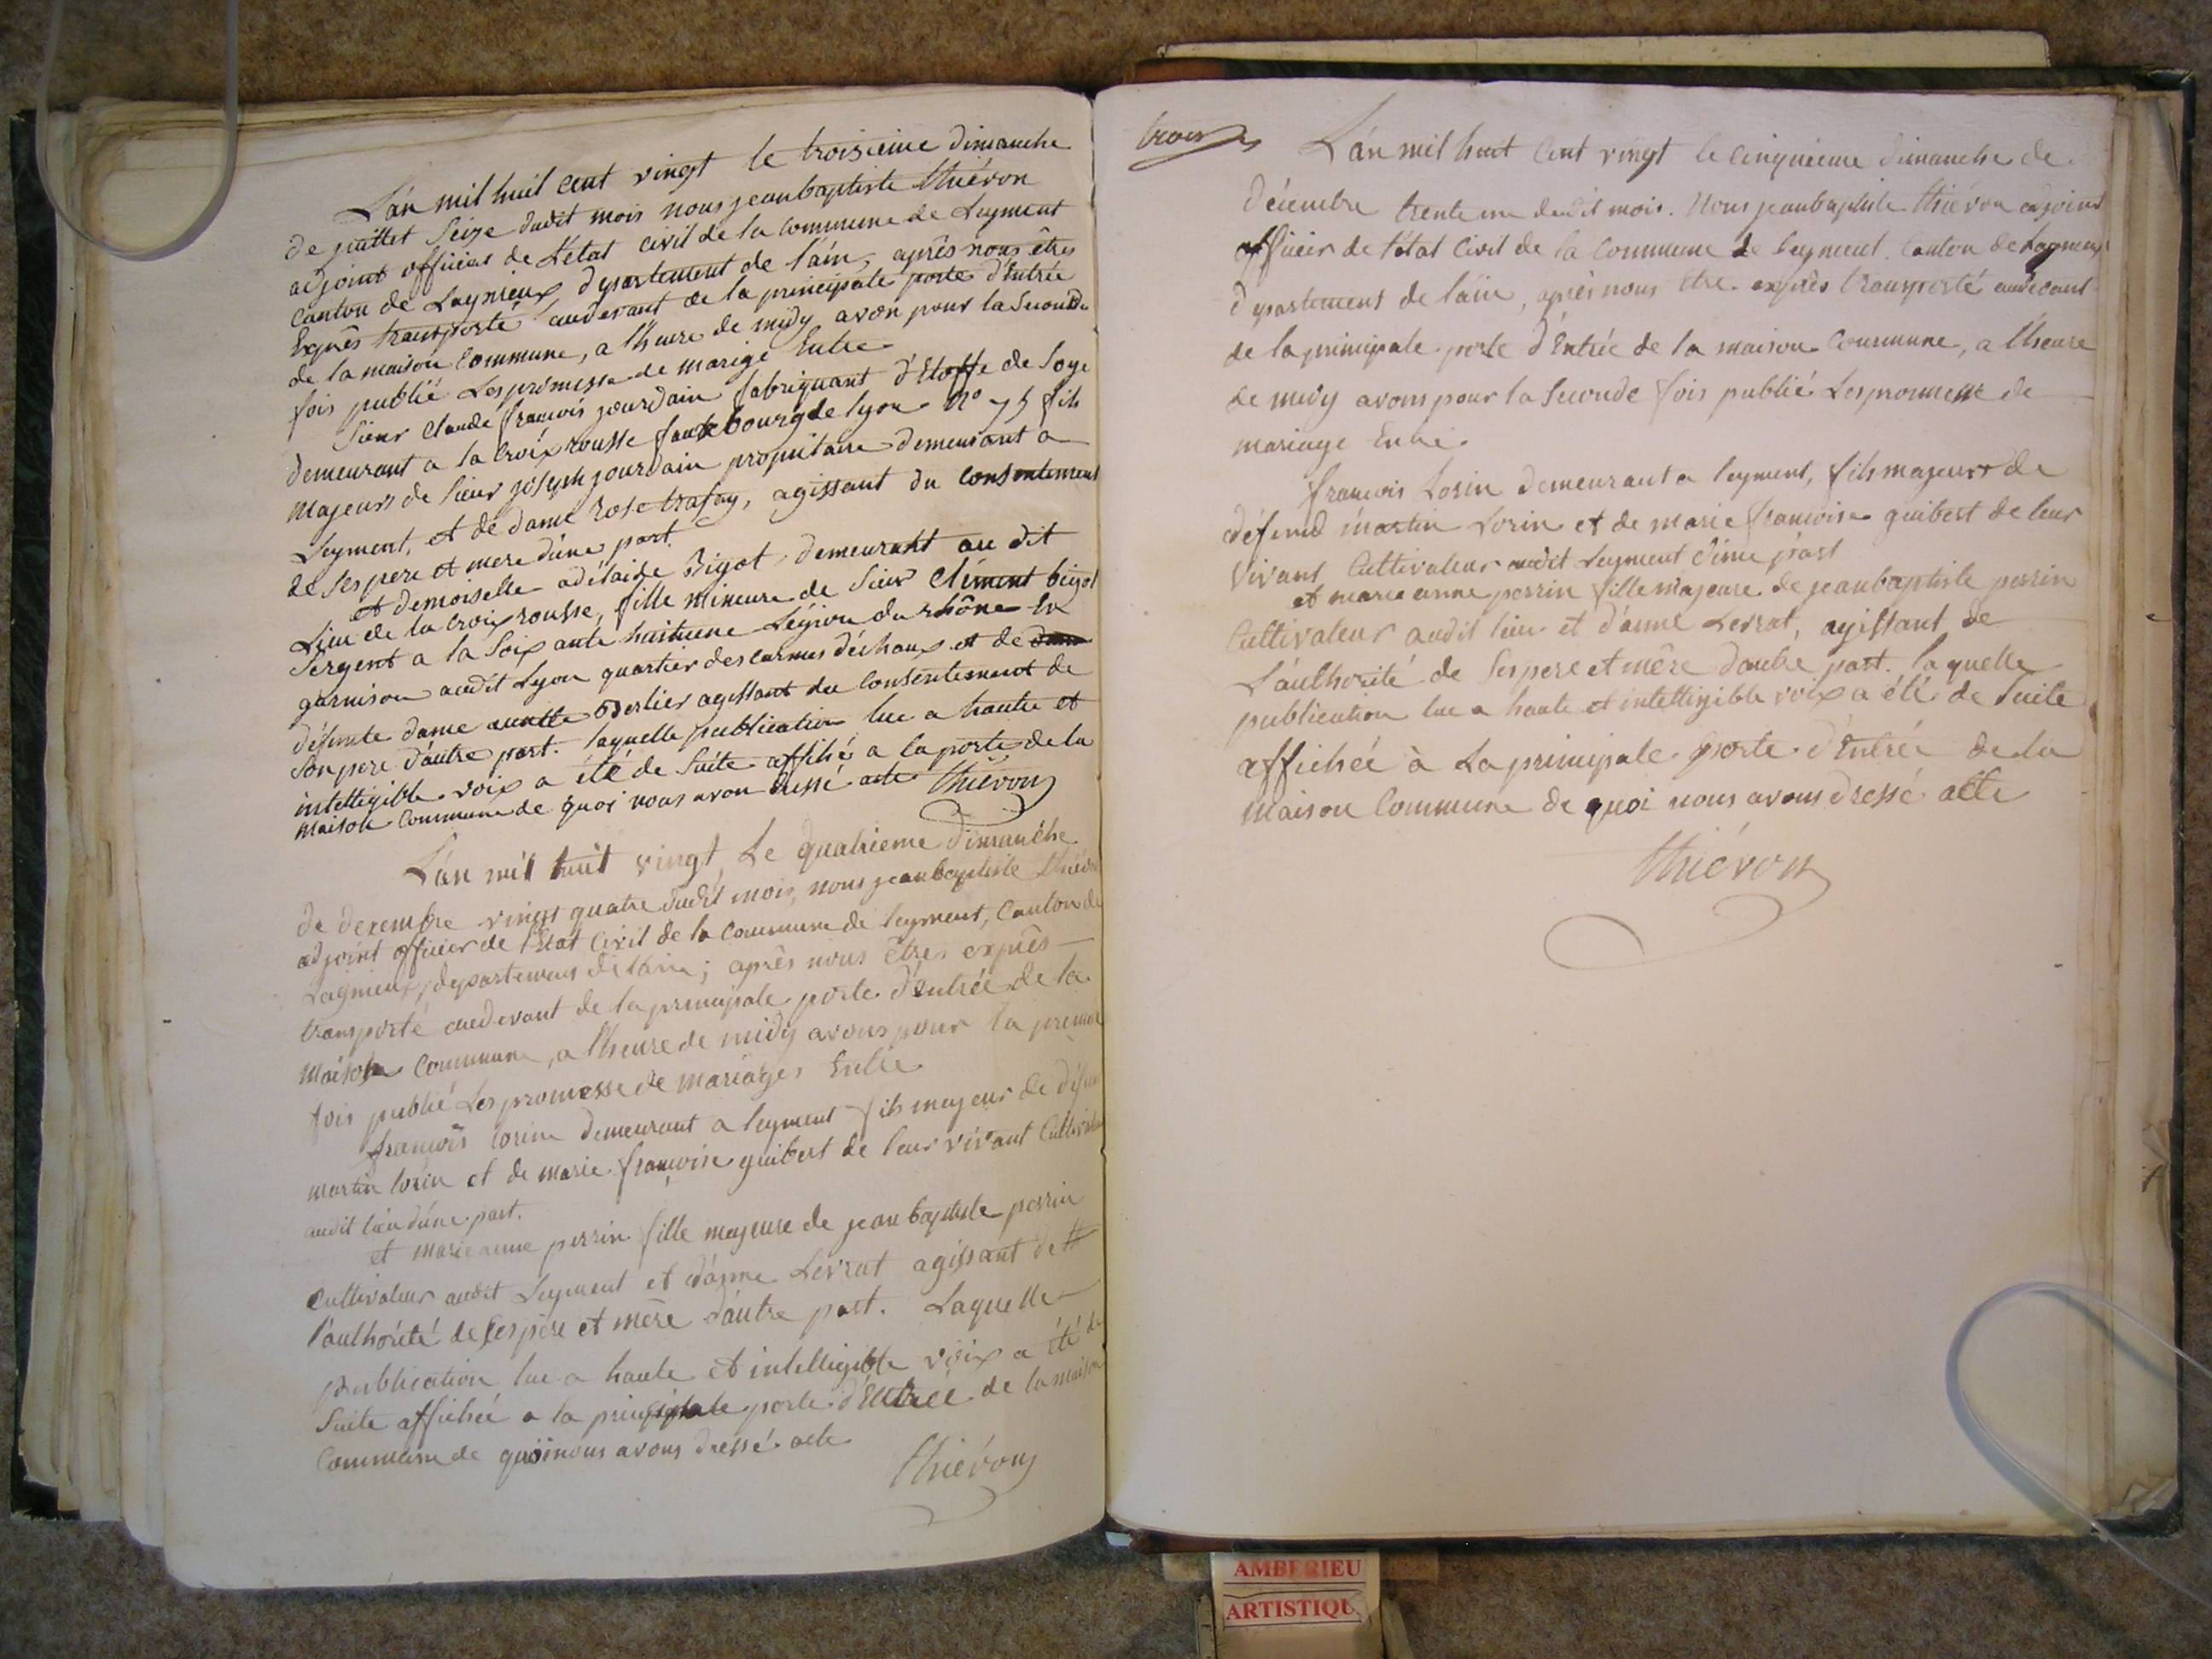 L'an mil huit cent vingt le troisieme dimanche
de juillet Seize dudit mois nous jeanbaptiste thiévon
adjoint officier de L'état civil de la commune de Leyment
canton de Lagnieux, département de l'ain, après nous êtres
Exprês transporté audevant de la principale porte d'Entrée
de la maison Commune, a l'heure de midy avon pour la Seconde
fois publié Les promesse de marige Entre
Sieur claude françois jourdain fabriquant d'Etoffe de Soye
demeurant a la croix rousse fauxbourg de lyon N° 75 fils
majeurs de Sieur joseph jourdain propriétaire demeurant a
Leyment, et de dame rose trafay, agissant du consentement
de Ses pere et mere d'une part
et demoiselle adélaide Bigot demeurant au dit
Lieu de la croix rousse, fille mineure de Sieur Clément bigot
Sergent a la Soixante huitieme Légion du rhône En
garnison audit Lyon quartier des carmes déchaux et de
défunte dame Borlier agissant du Consentement de
Son pere d'autre part. laquelle publication lue a haute et
intelligible voix a été de Suite affiché a la porte de la
maison commune de quoi nous avon dressé acte thiévon
L'an mil huit vingt, Le quatrieme dimanche
de decembre vingt quatre dudit mois, nous jeanbaptiste thiévon
adjoint officier de l'Etat Civil de la commune de leyment, Canton de
Lagnieux, departement de l'ain; après nous êtres exprês
transporté audevant de la principale porte d'entrée de la
maison Commune, a l'heure de midy avons pour la premiere
fois publié Les promesse de mariages Entre
françois lorin demeurant a leyment fils majeur de défunt
martin lorin et de marie françoise guibert de leur vivant Cultivateur
audit lieu d'une part.
et marie anne perrin fille majeure de jean baptiste perrin
cultivateur audit Leyment et d'anne Levrat agissant de
l'authorité de Ses père et mère d'autre part. Laquelle
publication lue a haute et intelligible voix a été de
Suite affichée a la principale porte d'Entrée de la maison
Commune de quoi nous avons dressé acte
thiévon
trois
L'an mil huit Cent vingt le cinquieme dimanche de
décembre trente un dudit mois. Nous jeanbaptiste thiévon adjoint
officier de l'état Civil de la Commune de leyment. Canton de Lagnieux
département de l'ain, après nous être exprès transporté audevant
de la principale porte d'Entrée de la maison Commune, a l'heure
de midy avons pour la Seconde fois publié Les promesse de
mariage Entre.
françois Lorin demeurant a leyment, fils majeurs de
défund martin Lorin et de marie françoise guibert de leur
vivant Cultivateur audit Leyment d'une part
et marie anne perrin fille majeure de jeanbaptiste perrin
Cultivateur audit lieu et d'anne Levrat, agissant de
L'authorité de Ses pere et mêre d'autre part. laquelle
publication lue a haute et intelligible voix a été de Suite
affichée à La principale porte d'Entrée de la
maison Commune de quoi nous avons dressé acte
thiévon
AMBERIEU
ARTISTIQU